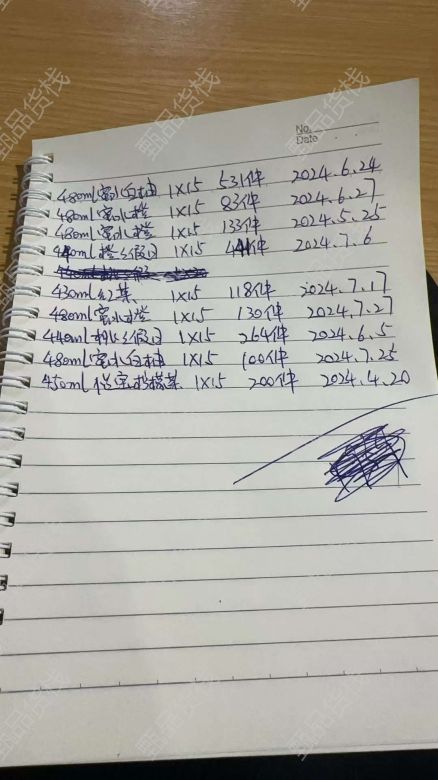 No.
Date
480ml蜜水白柚 1X15 531件 2024.6.24
480ml蜜水橙 1X15 83件 2024.6.27
480ml蜜水橙 1X15 133件 2024.5.25
440ml橙红假日 1X15 441件 2024.7.6
430ml红茶 1X15 118件 2024.7.17
480ml蜜水橙 1X15 130件 2024.7.27
440ml 1X15 264件 2024.6.5
480ml蜜水白柚 1X15 100件 2024.7.25
450ml 檬茶 1X15 200件 2024.4.20
甄品货栈